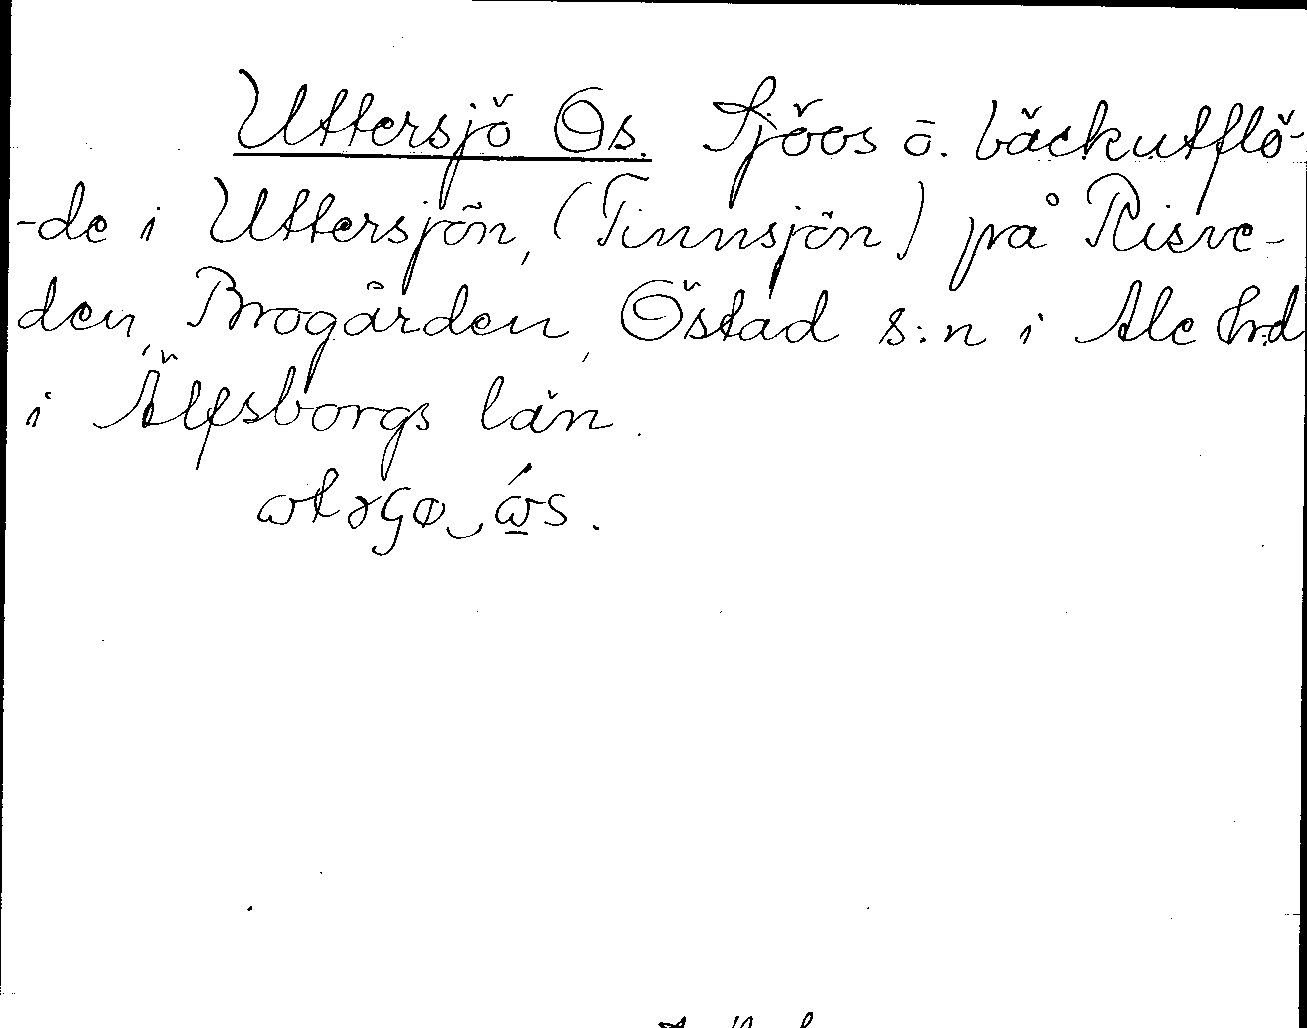 Uttersjö Os. Sjöos o. bäckutflö-
-de i Uttersjön, (Tinnsjön) på Risve-
den, Brogården, Östad s:n i Ale hrd
i Älfsborgs län.